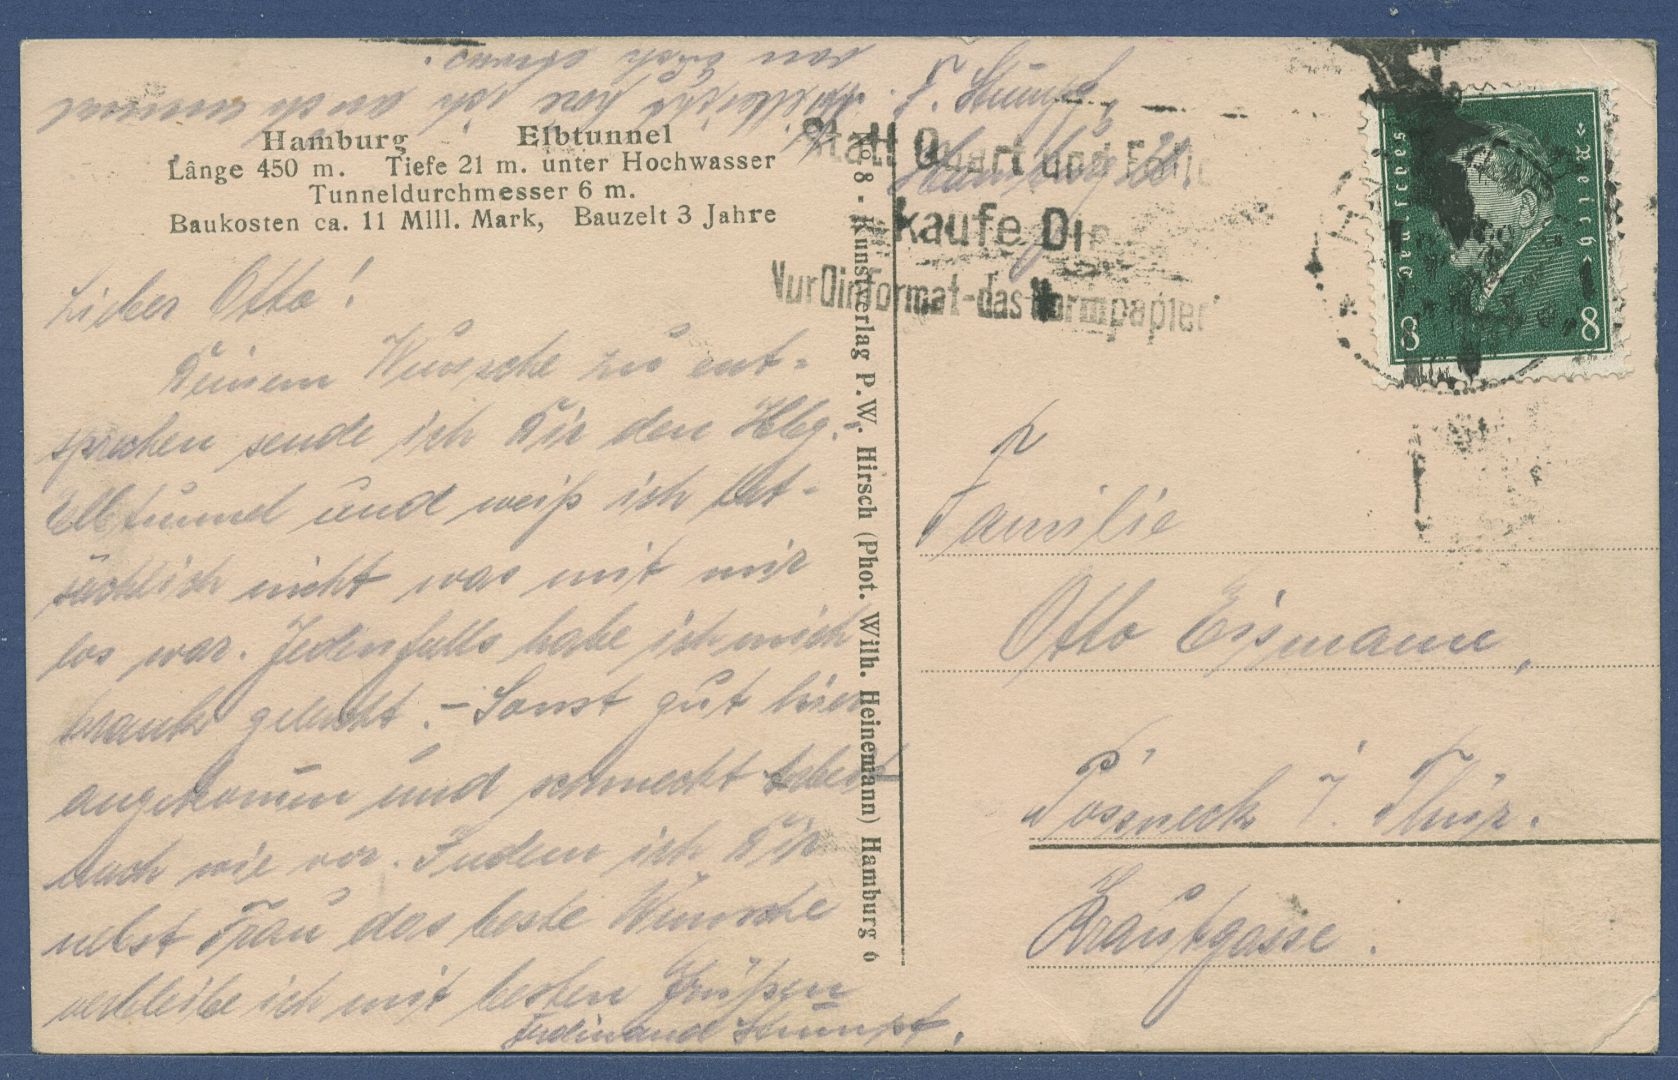 von Euch etwas.
Vielleicht höre ich auch einmal
F. Stumpf,
Hamburg
Hamburg Elbtunnel
Länge 450 m. Tiefe 21 m. unter Hochwasser
Tunneldurchmesser 6 m.
Baukosten ca. 11 Mlll. Mark, Bauzelt 3 Jahre
Lieber Otto!
Deinem Wunsche zu ent-
sprechen sende ich Dir den Hbg.-
Elbtunnel und weiß ich tat-
sächlich nicht was mit mir
los war. Jedenfalls habe ich mich
krank gelacht. - Sonst gut hier
angekommen und schmeckt
nach wie vor. Indem ich Dir
nebst Frau das beste Wünsche
verbleibe ich mit besten Grüßen
Ferdinand Stumpf.
No. 8 - Kunstverlag P. W. Hirsch (Phot. Wilh. Heinemann) Hamburg 6
Statt Quart und Folio
kaufe Din
Nur Dinformat-das Normpapier
Deutsches Reich
8 8
Familie
Otto Eismann,
Pössneck i. Thür.
Krautgasse.